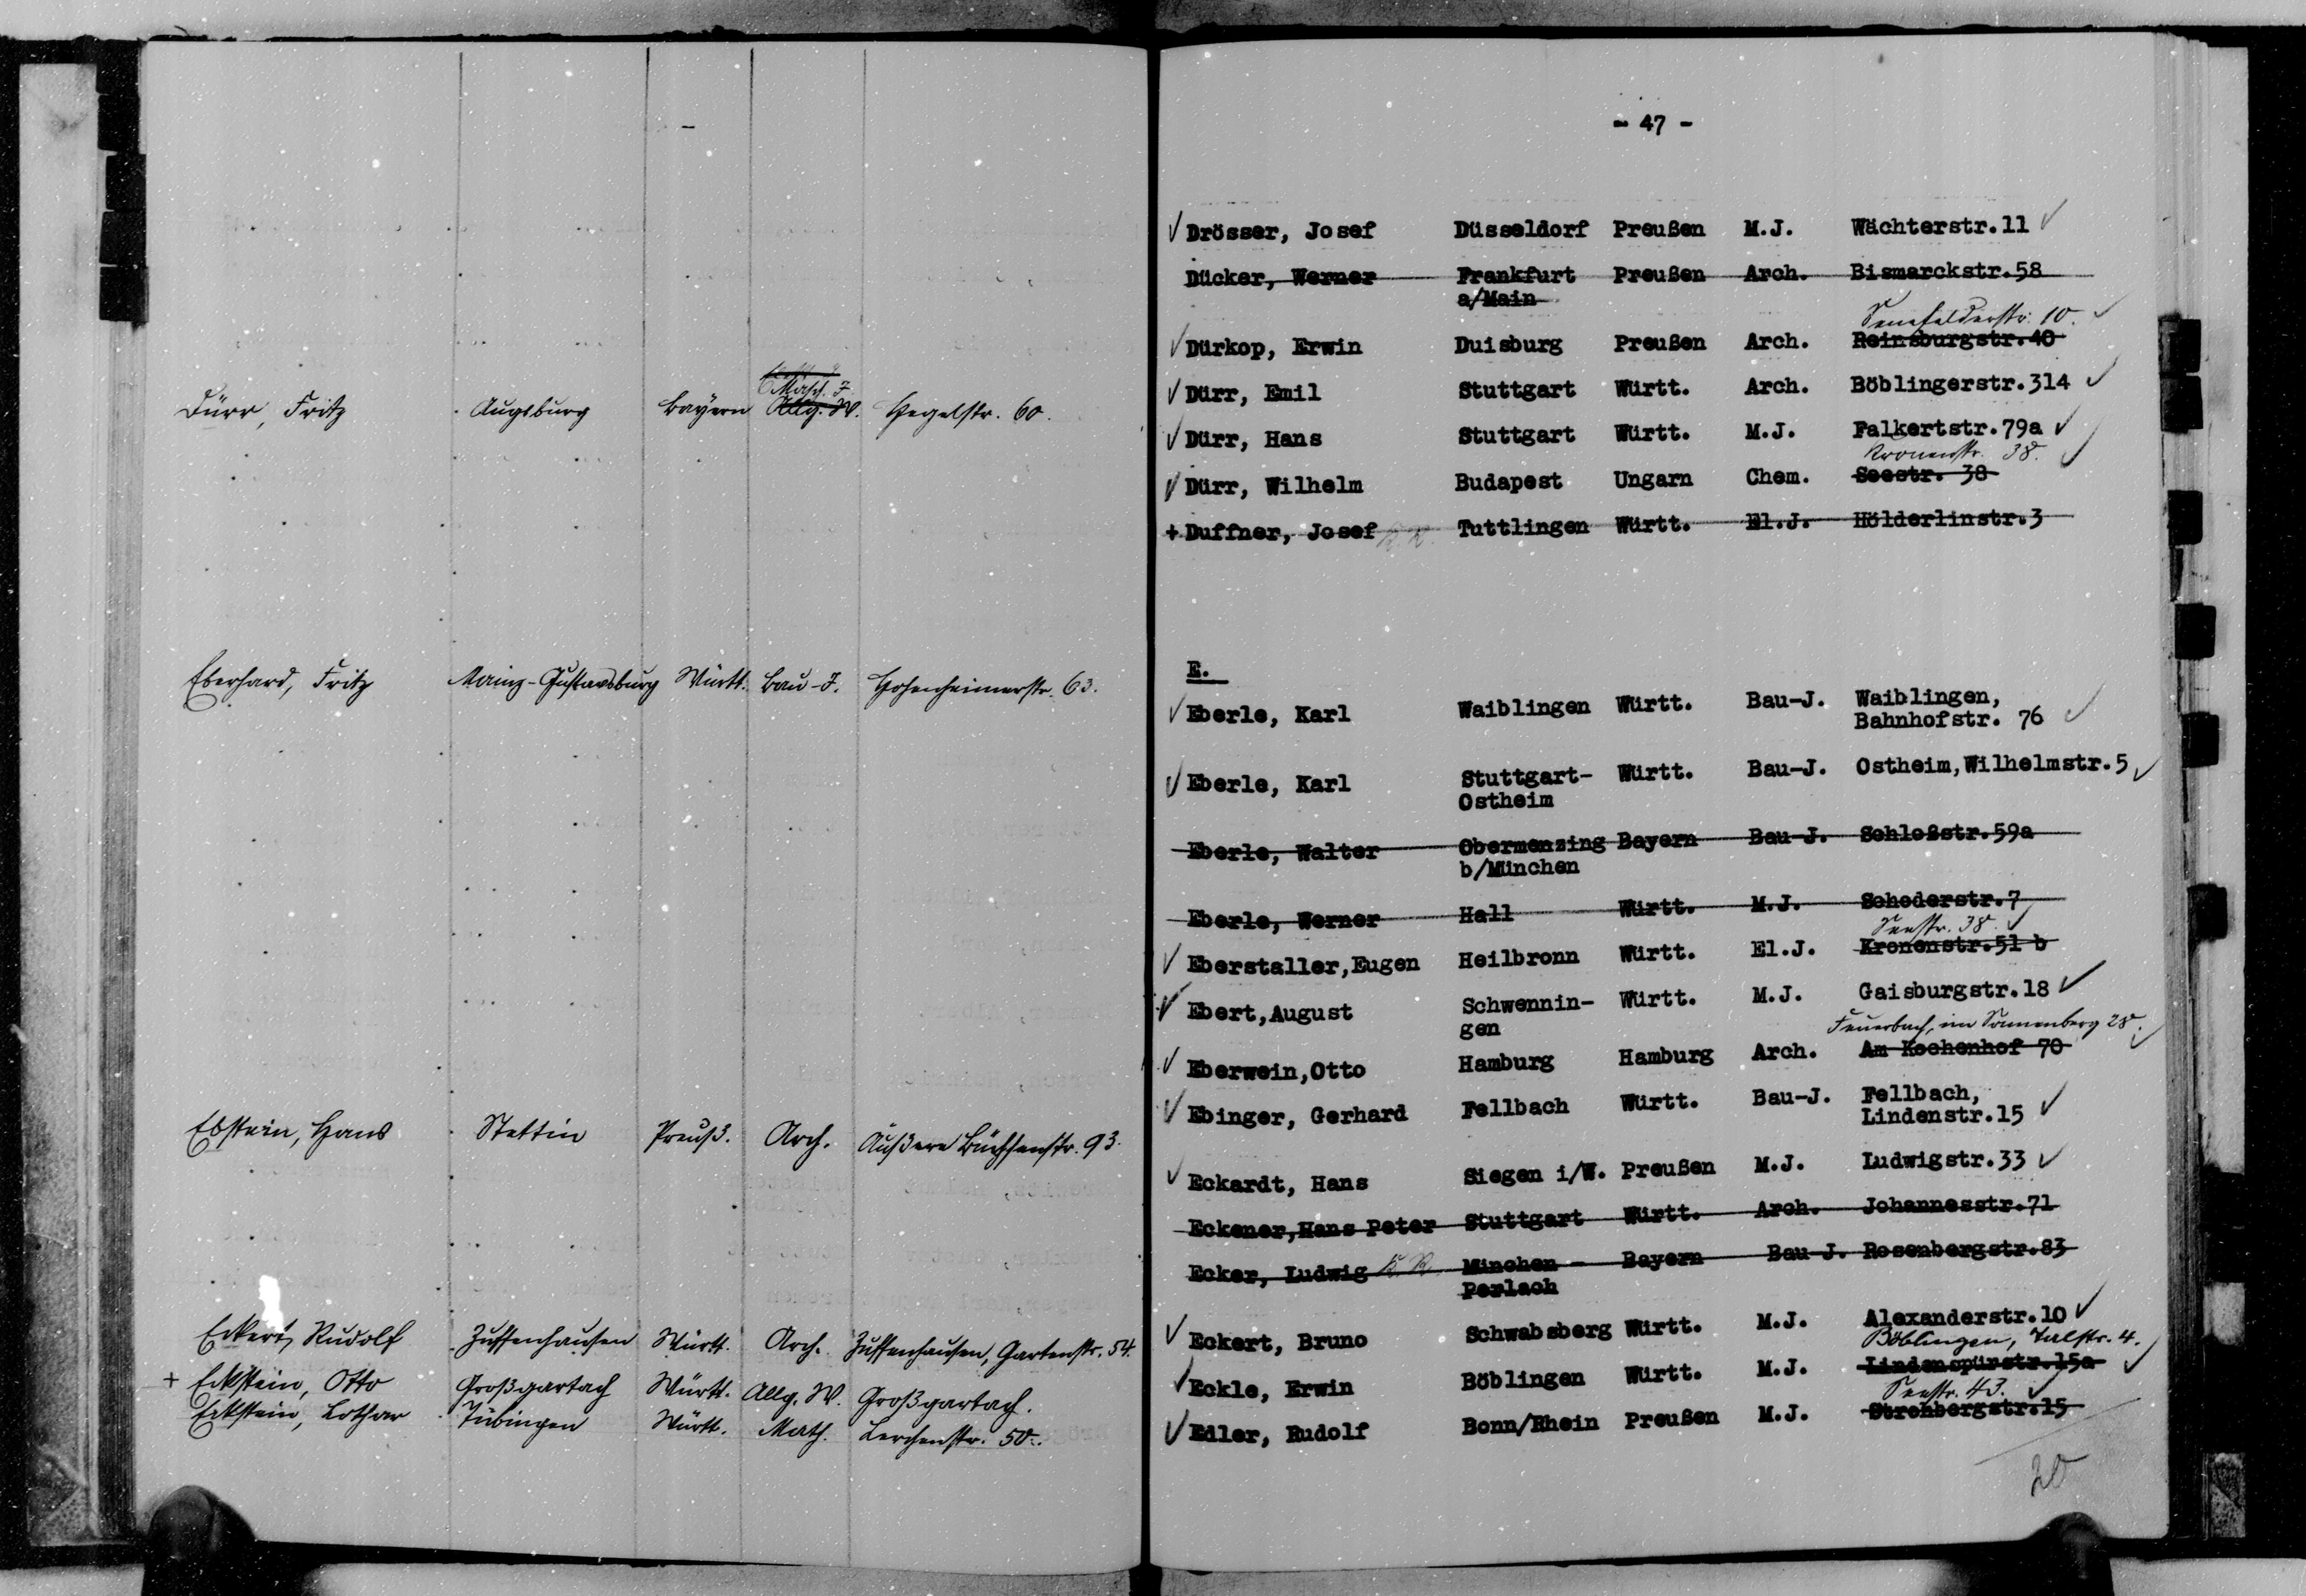 Dürr, Fritz Augsburg Bayern Masch. J. Allg. W. Hegelstr. 60.
Eberhard, Fritz Mainz-Gustavsburg Württ. Bau-J. Hohenheimerstr. 63.
Ebstein, Hans Stettin Preuß. Arch. Äußere Büchsenstr. 93.
Eckert, Rudolf Zuffenhausen Württ. Arch. Zuffenhausen, Gartenstr. 54.
+ Eckstein, Otto Großgartach Württ. Allg. W. Großgartach.
Eckstein, Lothar Tübingen Württ. Math. Lerchenstr. 50.
- 47 -
Drösser, Josef Düsseldorf Preußen M.J. Wächterstr.11
Dücker, Werner Frankfurt Preußen Arch. Bismarckstr.58
a/Main
Senefelderstr. 10.
Dürkop, Erwin Duisburg Preußen Arch. Reinsburgstr.40
Dürr, Emil Stuttgart Württ. Arch. Böblingerstr.314
Dürr, Hans Stuttgart Württ. M.J. Falkertstr.79a
Kronenstr. 38.
Dürr, Wilhelm Budapest Ungarn Chem. Seestr. 38
+ Duffner, Josef Tuttlingen Württ. El.J. Hölderlinstr.3
E.
Eberle, Karl Waiblingen Württ. Bau-J. Waiblingen,
Bahnhofstr. 76
Eberle, Karl Stuttgart- Württ. Bau-J. Ostheim,Wilhelmstr.5
Ostheim
Eberle, Walter Obermenzing Bayern Bau-J. Schloßstr.59a
b/München
Eberle, Werner Hall Württ. M.J. Schoderstr.7
Seestr. 38.
Eberstaller,Eugen Heilbronn Württ. El.J. Kronenstr.51 b
Ebert,August Schwennin- Württ. M.J. Gaisburgstr.18
gen
Feuerbach, im Sonnenberg 28.
Eberwein,Otto Hamburg Hamburg Arch. Am Kochenhof 70
Ebinger, Gerhard Fellbach Württ. Bau-J. Fellbach,
Lindenstr.15
Eckardt, Hans Siegen i/W. Preußen M.J. Ludwigstr.33
Eckener,Hans Peter Stuttgart Württ. Arch. Johannesstr.71
Ecker, Ludwig München - Bayern Bau-J. Rosenbergstr.83
Perlach
Eckert, Bruno Schwabsberg Württ. M.J. Alexanderstr.10
Böblingen, Talstr. 4.
Eckle, Erwin Böblingen Württ. M.J. Lindenspürstr.15a
Seestr. 43.
Edler, Rudolf Bonn/Rhein Preußen M.J. Strohbergstr.15
20